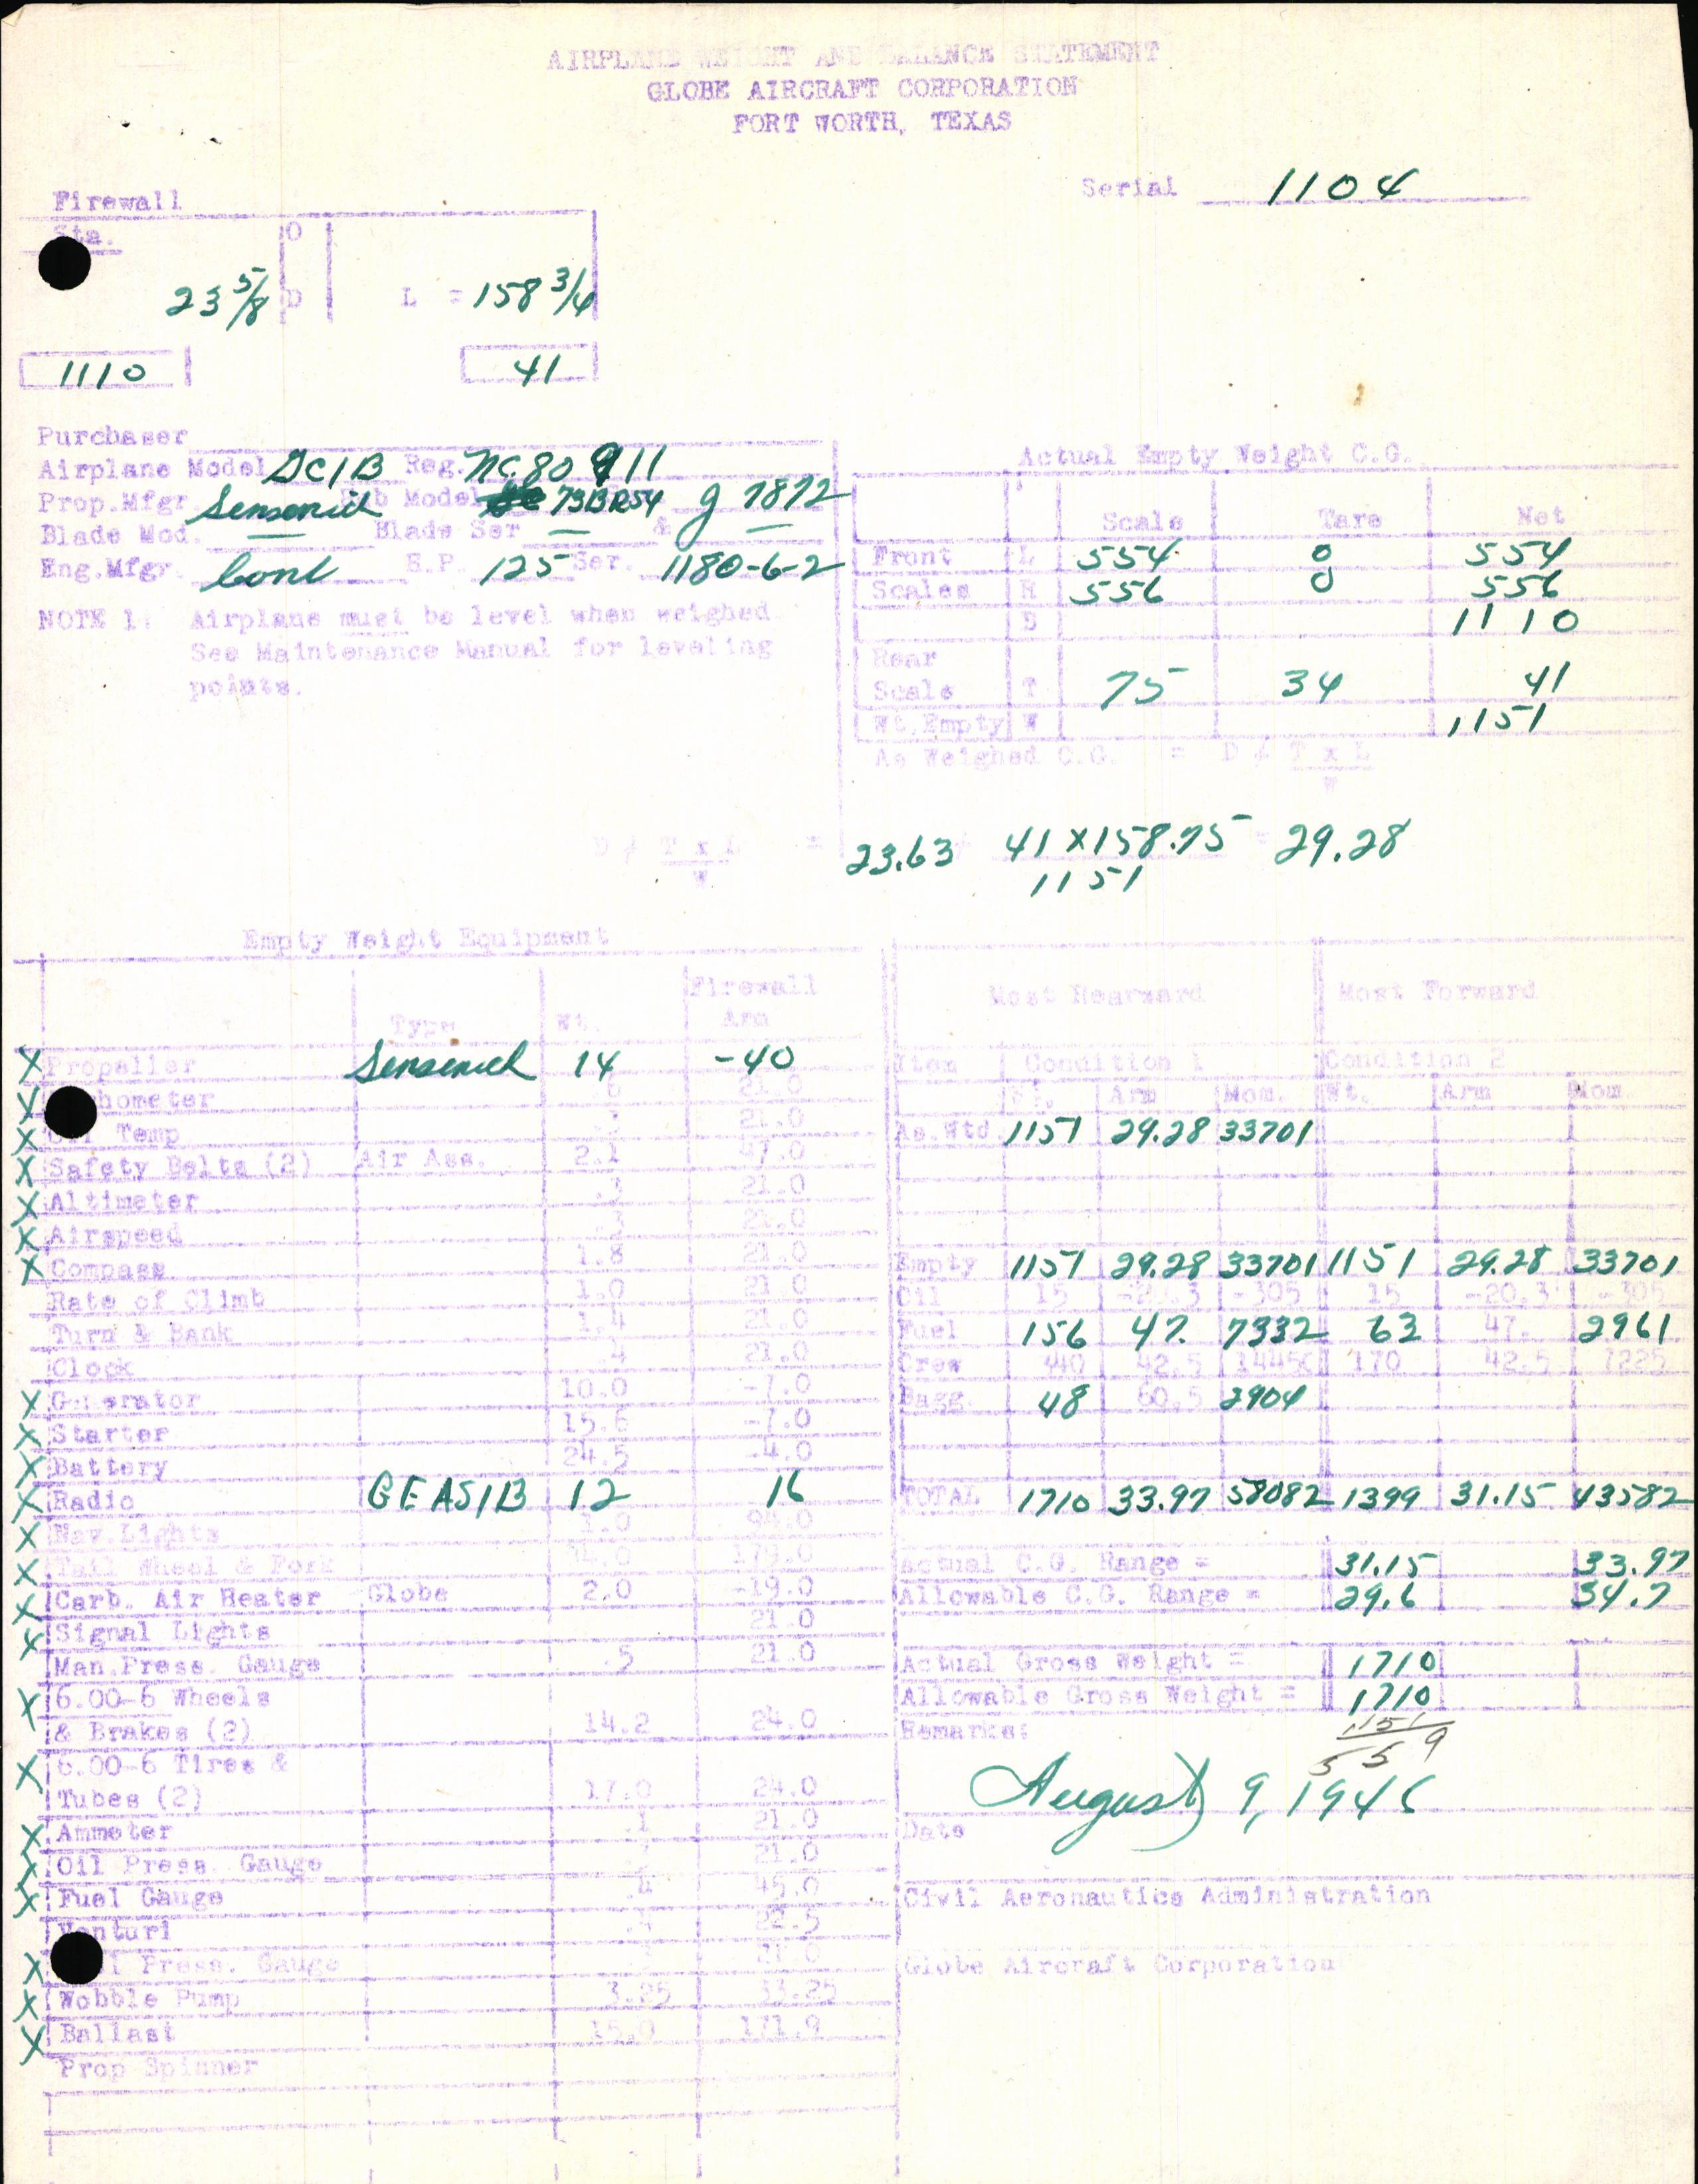 AIRPLANE WEIGHT AND BALANCE STATEMENT
GLOBE AIRCRAFT CORPORATION
FORT WORTH, TEXAS
Serial 1104
Firewall
Sta. O
23 5/8 D L = 158 3/4
1110 41
Purchaser
Airplane Model GC1B Reg. NC 80911
Prop.Mfgr. Sensenich Hub Model 73BR54 7872
Blade Mod. — Blade Ser — & —
Eng.Mfgr. Cont H.P. 125 Ser. 1180-6-2
NOTE 1: Airplane must be level when weighed
See Maintenance Manual for leveling
points.
Actual Empty Weight C.G.
Scale Tare Net
Front L 554 0 554
Scales R 556 0 556
1110
Rear
Scale T 75 34 41
Wt.Empty W 1151
As Weighed C.G. = D ≠ T x L
W
D ≠ T x L = 23.63 ≠ 41 x 158.75 = 29.28
W 1151
Empty Weight Equipment
Type Wt. Firewall Arm
X Propeller Sensenich 14 -40
X Tachometer 21.0
X Oil Temp 21.0
X Safety Belts (2) Air Ass. 2.1 47.0
X Altimeter 21.0
X Airspeed 21.0
X Compass 1.8 21.0
Rate of Climb 1.0 21.0
Turn & Bank 1.4 21.0
Clock .4 21.0
X Generator 10.0 -7.0
X Starter 15.6 -7.0
X Battery 24.5 -4.0
X Radio GE AS1B 12 16
X Nav.Lights 1.0
X Tail Wheel & Fork
X Carb. Air Heater Globe 2.0 -19.0
X Signal Lights 21.0
Man.Press. Gauge .5 21.0
X 6.00-6 Wheels
& Brakes (2) 14.2 24.0
X 6.00-6 Tires &
Tubes (2) 17.0 24.0
X Ammeter .1 21.0
X Oil Press. Gauge 21.0
X Fuel Gauge 45.0
Venturi .4 22.5
X Fuel Press. Gauge 21.0
X Wobble Pump 3.25 33.25
X Ballast 15.0 171.9
Prop Spinner
Most Rearward Most Forward
Item Condition 1 Condition 2
Wt. Arm Mom. Wt. Arm Mom
As.Wtd. 1151 29.28 33701
Empty 1151 29.28 33701 1151 29.28 33701
Oil 15 -20.3 -305 15 -20.3 -305
Fuel 156 47. 7332 63 47. 2961
Crew 340 42.5 14450 170 42.5 7225
Bagg. 48 60.5 2904
TOTAL 1710 33.97 58082 1399 31.15 43582
Actual C.G. Range = 31.15 33.97
Allowable C.G. Range = 29.6 34.7
Actual Gross Weight = 1710
Allowable Gross Weight = 1710
Remarks: 1151
559
August 9, 1946
Date
Civil Aeronautics Administration
Globe Aircraft Corporation